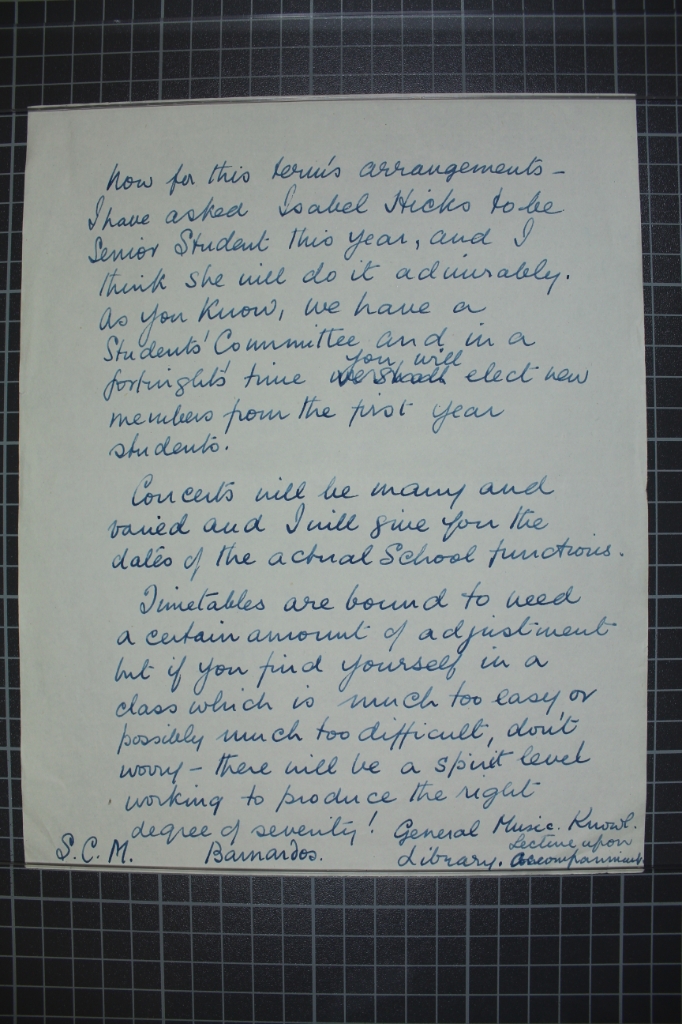 Now for this term's arrangements –
I have asked Isabel Hicks to be
Senior Student this year, and I
think she will do it admirably.
As you know, we have a
Students' Committee and in a
fortnight's time we shall you will elect new
members from the first year
students.
Concerts will be many and
varied and I will give you the
dates of the actual School functions.
Timetables are bound to need
a certain amount of adjustment
but if you find yourself in a
class which is much too easy, or
possibly much too difficult, don't
worry – there will be a spirit level
working to produce the right
degree of severity! General Music. Knowl.
S.C.M. Barnardos. Library. Lecture upon
Accompaniment